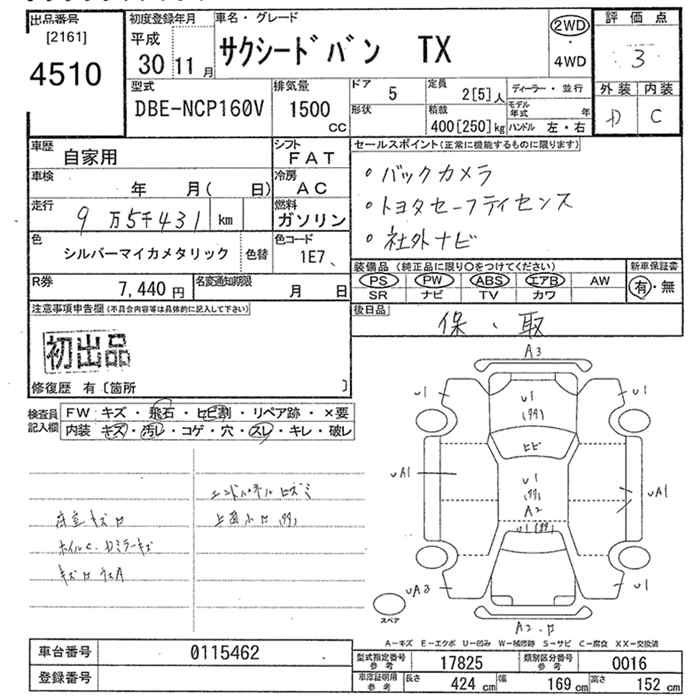 出品番号
[2161]
4510
初度登録年月
平成
30 11月
車名・グレード
サクシードバン TX
2WD
・
4WD
評価点
3
外装 内装
D C
型式
DBE-NCP160V
排気量
1500
CC
ドア
5
形状
定員
2[5]人
積載
400[250]kg
ディーラー・並行
モデル
年式 年
ハンドル 左・右
車歴
自家用
シフト
FAT
車検
年 月( 日)
冷房
AC
走行
9万5千431 km
燃料
ガソリン
色
シルバーマイカメタリック
色替
色コード
1E7、
R券
7,440円
名変通知期限
月 日
セールスポイント(正常に機能するものに限ります)
。バックカメラ
。トヨタセーフティセンス
。社外ナビ
装備品 (純正品に限り○をつけてください)
PS PW ABS エアB AW
SR ナビ TV カワ
新車保証書
有・無
後日品
保・取
注意事項申告欄(不具合内容等は具体的に記入して下さい)
初出品
修復歴 有〔箇所 〕
検査員
記入欄
FW キズ・飛石・ヒビ割・リペア跡・×要
内装 キズ・汚レ・コゲ・穴・スレ・キレ・破レ
エンドパネルヒズミ
A3
U1
U1
U1
ヒビ
UA1
U1
A2
UA1
UA3
U1
スペア
A2
A-キズ E-エクボ U-凹み W-補修跡 S-サビ C-腐食 XX-交換済
車台番号
0115462
登録番号
型式指定番号
参考
17825
類別区分番号
参考
0016
車庫証明用
参考
長さ 424cm 幅 169cm 高さ 152cm